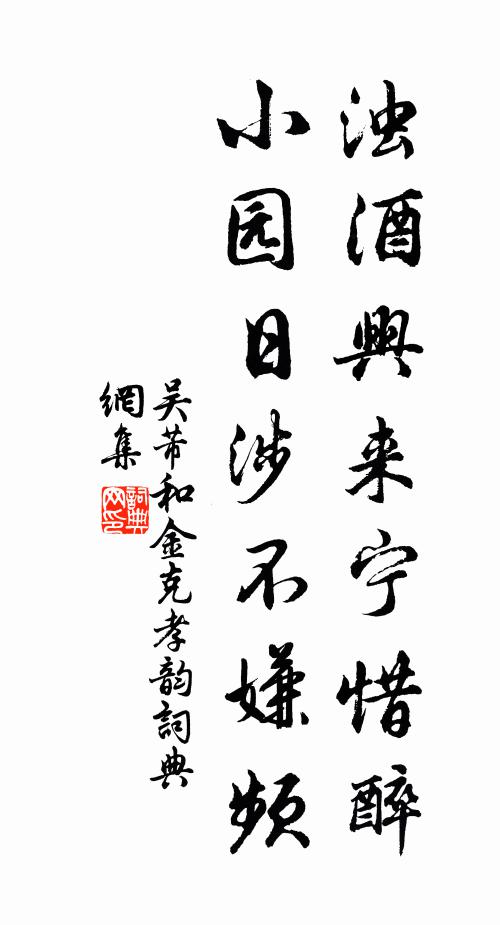 浊酒興来宁惜醉
小园日涉不嫌频
吴芾和金克孝韵詞典
網集
詞典
网印